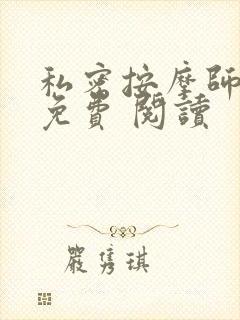 私密按摩師
免費 閱讀
嚴雋琪